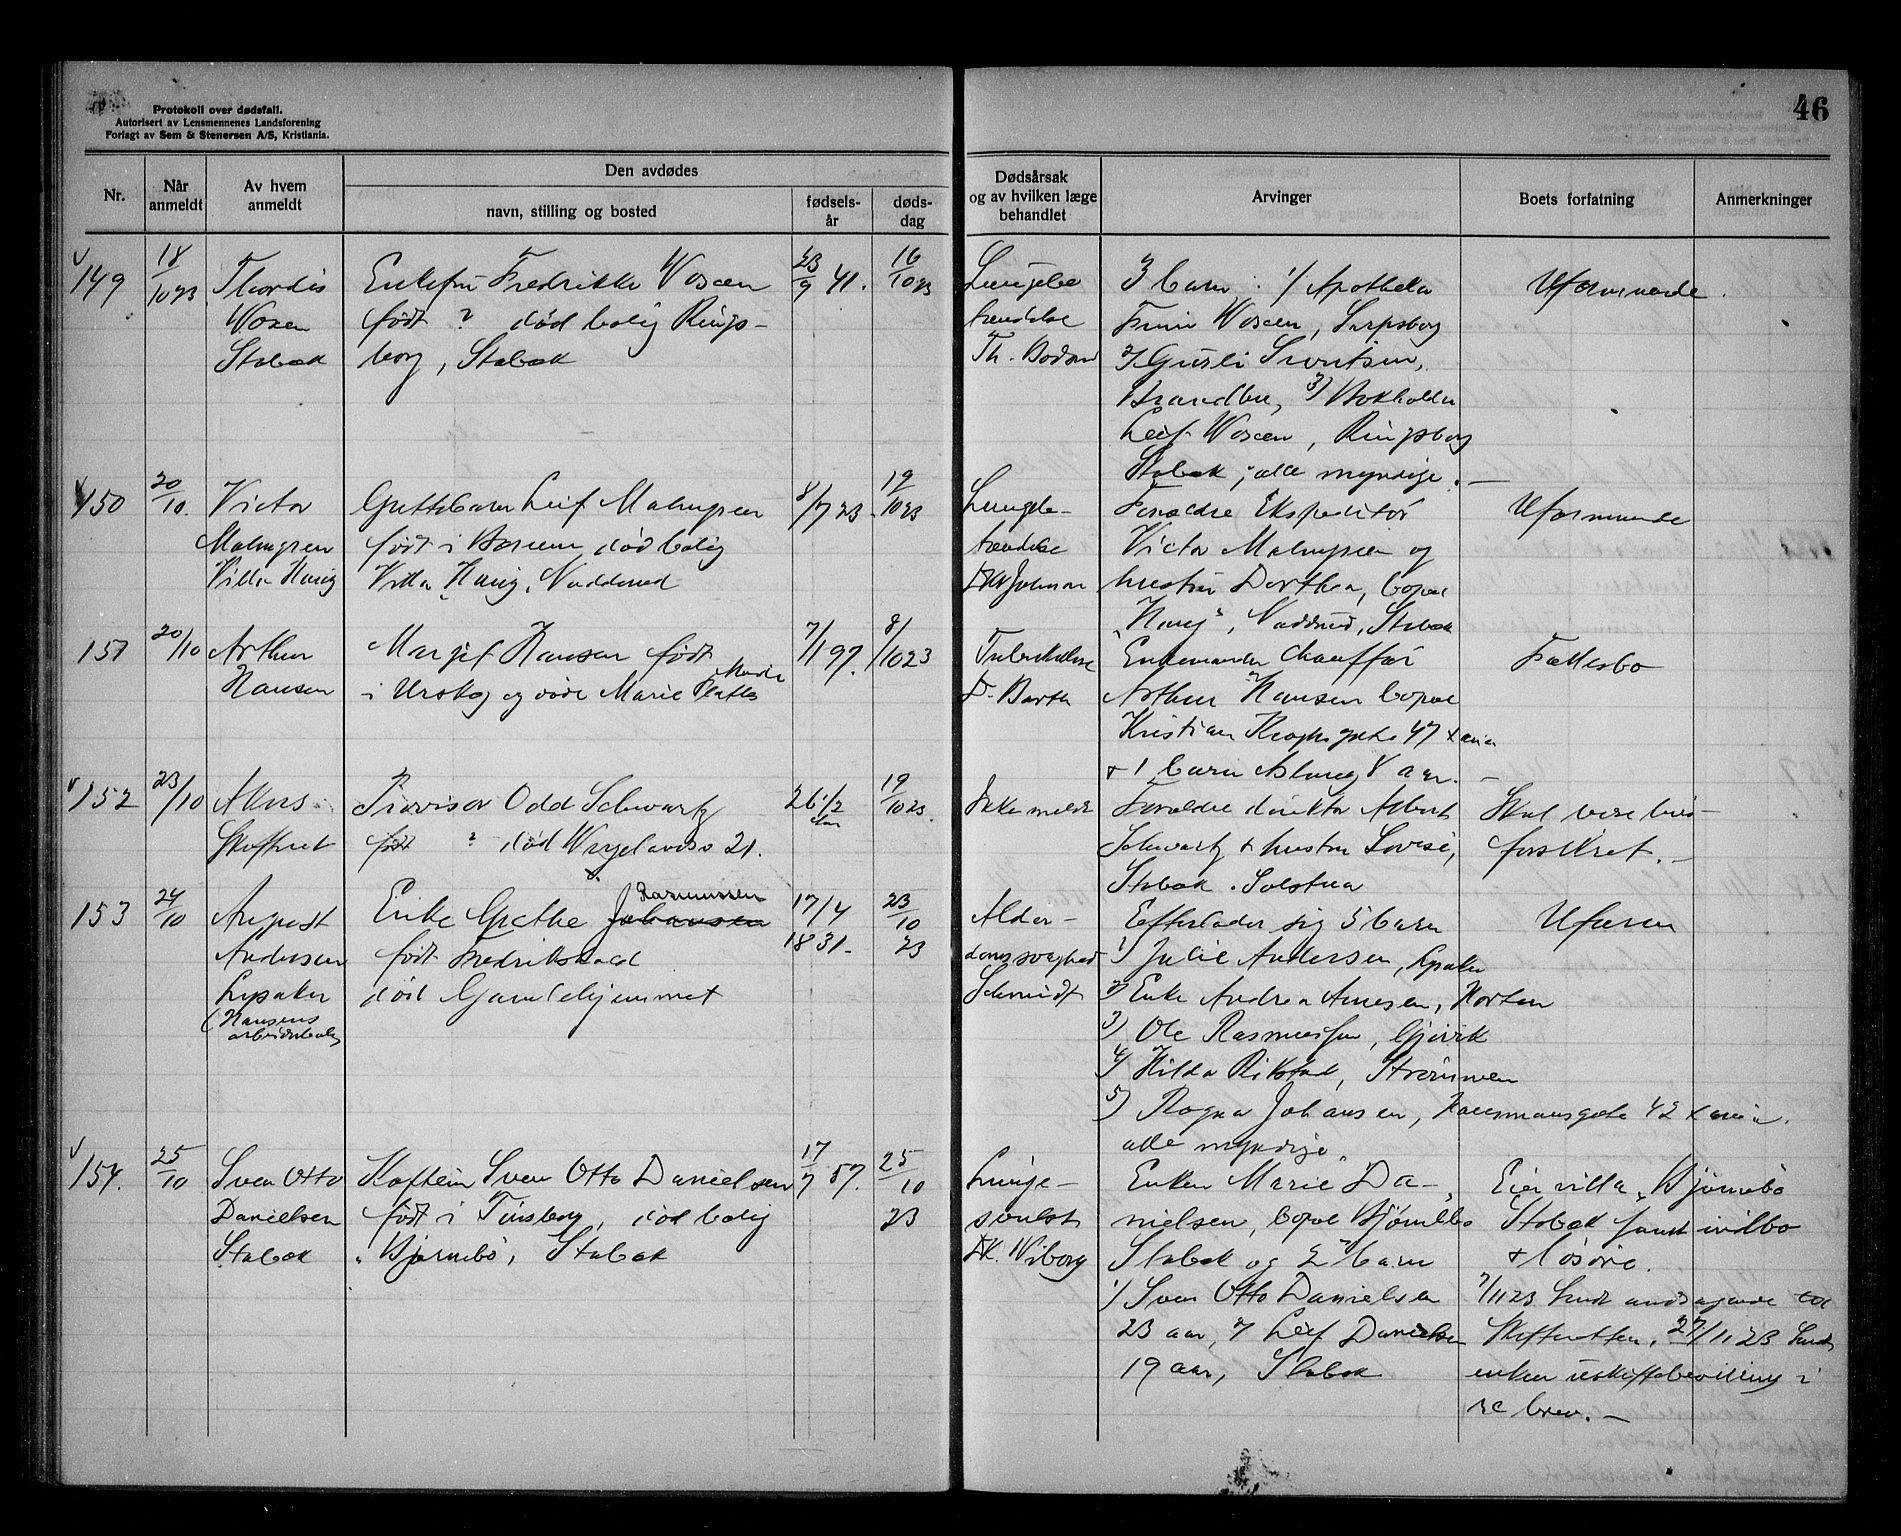 Protokoll over dødsfall.
Autorisert av Lensmennenes Landsforening
Forlagt av Sem & Stenersen A/S, Kristiania.
46
Nr.
Når anmeldt
Av hvem anmeldt
Den avdødes
navn, stilling og bosted
fødsels-år
døds-dag
Dødsårsak og av hvilken læge behandlet
Arvinger
Boets forfatning
Anmerkninger
149
18/10 23
Thordis
Woxen
Stabæk
Enkefru Fredrikke Woxen
født ? død bolig Rings-
borg, Stabæk
23/9 41.
16/10 23
Lungebe
tændelse
Th. Bodom
3 barn: 1/ Apotheker
Woxen, Sarpsborg
2/ Gusli
3) Bokholder
Leif Woxen, Ringsborg
Stabæk, alle myndige.
Uformuende.
150
20/10.
Victor
Malmgren
Villa Haug
Guttebarn Leif Malmgren
født i Bærum død bolig
Villa Haug, Nadderud
8/7 23.
19/10 23
Lungebe-
tændelse
Forældre Ekspeditør
Victor Malmgren og
hustru Dorthea, bopæl
"Haug", Nadderud, Stabæk
Uformuende
151
20/10
Arthur
Hansen
Margit Hansen født
i Urskog og døde Marie Plattes
Minde
7/1 97.
8/10 23
Tuberkulose
Dr. Barth
Enkemanden chauffør
Arthur Hansen bopæl
Kristian Kroghs gate 47 Xania
+ 1 barn Aslaug 8 aar.
Fællesbo
152
23/10
Akers
Skifteret
Provisor Odd Schwartz
født ? død Wergelandsv 21.
26 1/2
aar
19/10 23.
Ikke meldt
Forældre direktør Albert
Schwartz & hustru Lovise,
Stabæk. Solstua
Skal være livs-
forsikret.
153
24/10
August
Andersen
Lysaker
(Hansens
arbeiderbolig
Rasmussen
Enke Grethe Johansen
født Fredrikshald
død Gamlehjemmet
17/4
1831.
23/10
23
Alder-
domssvaghet
Schmidt
Efterlader sig 5 barn
1) Julie Andersen, Lysaker
2) Enke Andrea Arnesen, Horten
3) Ole Rasmussen, Gjøvik
4) Hilda Rikstad, Strømmen
5) Ragna Johansen, Hausmansgate 42 Xania.
alle myndige.
154.
25/10
Sven Otto
Danielsen
Stabæk
Kaptein Sven Otto Danielsen
født i Tønsberg, død bolig
"Bjørnebo", Stabæk
17/7 57.
25/10
23
Lunge-
svulst
Dr. Wiborg
Enken Marie Da-
nielsen, bopæl Bjørnebo
Stabæk og 2 barn
1) Sven Otto Danielsen
23 aar, 2/ Leif Danielsen
19 aar, Stabæk
Eier villa "Bjørnebo"
Stabæk samt indbo
+ løsøre.
7/11 23 sendt andragende til
Skifteretten. 27/11 23 sendt
enken uskiftebevilling i
rc brev.